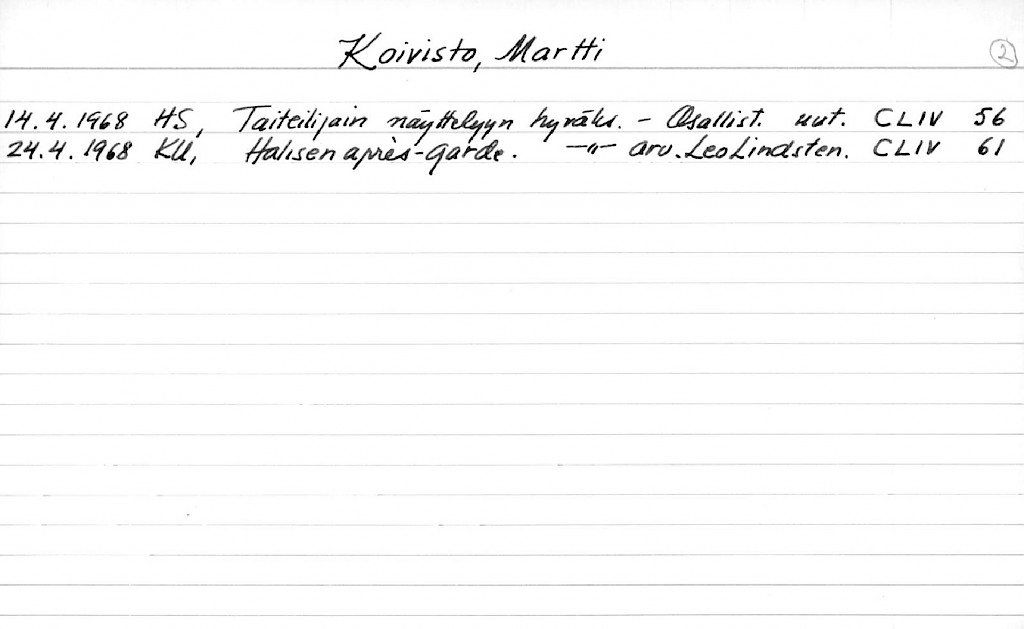 Koivisto, Martti 2
14.4.1968 HS, Taiteilijain näyttelyyn hyväks. - Osallist. uut. CLIV 56
24.4.1968 KU, Halisen après-garde. -"- arv. Leo Lindsten. CLIV 61